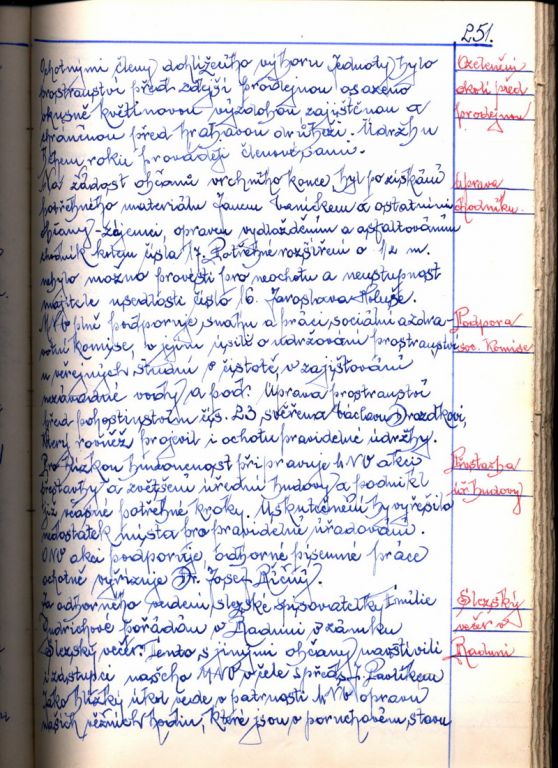 251.
Ochotnými členy dohlížecího výboru Jednoty bylo
prostranství před zdejší prodejnou osazeno
vkusně květinovou výzdobou zajištěnou a
chráněnou před hrabavou drůbeží. Údržbu
během roku provádějí členové sami.
Ozelenění
okolí před
prodejnou
Na žádost občanů vrchního konce byl po získání
potřebného materiálu Janem Vaníčkem a ostatními
občany - zájemci, opraven vydlážděním a asfaltováním
chodník kolem čísla 17. Potřebné rozšíření o 1/2 m.
nebylo možno provésti pro neochotu a neústupnost
majitele usedlosti číslo 16. Jaroslava
Úprava
chodníku.
MNV plně podporuje snahu a práci sociální a zdra-
votní komise, v jejím úsilí o udržování prostranství
u veřejných studní v čistotě, v zajišťování
nezávadné vody a pod. Úprava prostranství
před pohostinstvím čís. 23 svěřena Václavu Drozdkovi,
který rovněž projevil i ochotu pravidelné údržby.
Podpora
soc. Komise
Pro blízkou budoucnost připravuje MNV akci
přestavby a zvětšení úřední budovy a podnikl
již včasné potřebné kroky. Uskutečnění by vyřešilo
nedostatek místa pro pravidelné úřadování.
ONV akci podporuje, odborné písemné práce
ochotně vyřizuje Dr. Josef Říčný.
Přestavba
úř. budovy
Za odborného vedení slezské spisovatelky Emilie
pořádán v Raduni v zámku
Slezský večer. Tento s jinými občany navštívili
i zástupci našeho MNV v čele s předs. Pavlíkem
Slezský
večer v
Raduni
Jako blízký úkol vede v patrnosti MNV opravu
našich věžních hodin, které jsou v poruchovém stavu